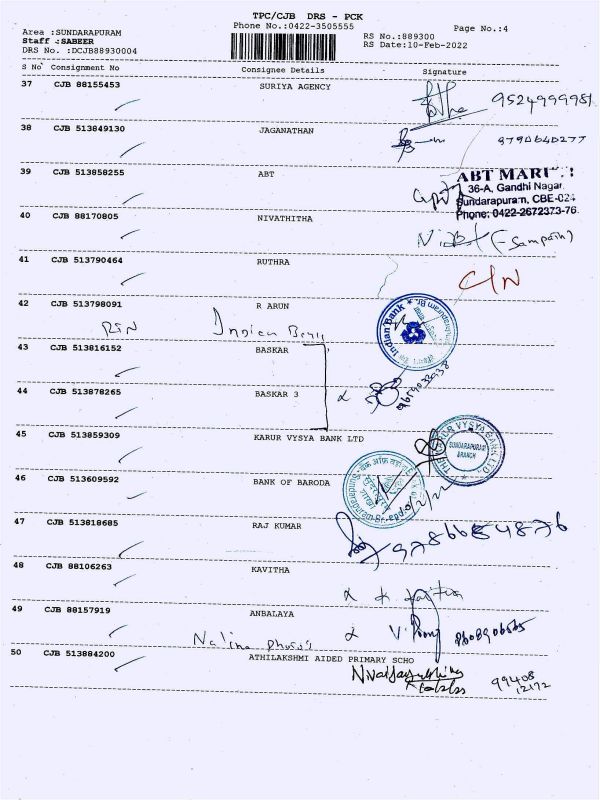 TPC/CJB DRS - PCK
Phone No.:0422-3505555
Page No.:4
Area :SUNDARAPURAM
RS No.:889300
Staff :SABEER
RS Date:10-Feb-2022
DRS No. :DCJB88930004
S No Consignment No Consignee Details Signature
37 CJB 88155453 SURIYA AGENCY
9524999951
38 CJB 513849130 JAGANATHAN
9790640277
39 CJB 513858255 ABT
ABT MARU
36-A, Gandhi Nagar
Sundarapuram, CBE-024
Phone: 0422-2672373-76
40 CJB 88170805 NIVATHITHA
(-Sampath)
41 CJB 513790464 RUTHRA
42 CJB 513798091 R ARUN
Indian Bank
Indian Bank
43 CJB 513816152 BASKAR
44 CJB 513878265 BASKAR 3
45 CJB 513859309 KARUR VYSYA BANK LTD
THE KARUR VYSYA BANK LTD.
SUNDARAPURAM
BRANCH
46 CJB 513609592 BANK OF BARODA
47 CJB 513818685 RAJ KUMAR
9786654876
48 CJB 88106263 KAVITHA
49 CJB 88157919 ANBALAYA
Nalina
50 CJB 513884200 ATHILAKSHMI AIDED PRIMARY SCHO
99408
12172